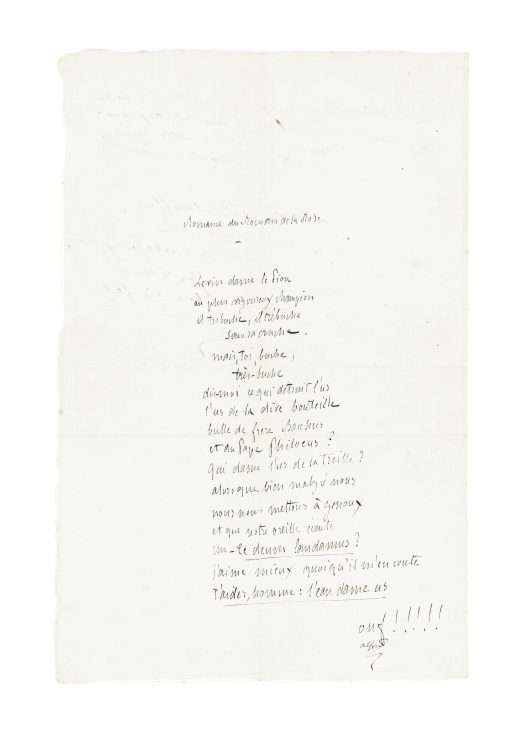 Romance du Roman de la Rose
le vin dame le Pion
au plus vigoureux champion
il trébuche, il trébuche
sans sa cruche.
mais, toi, buche,
très-buche
dis-moi ce qui détruit l'us
l'us de la dive bouteille
bulle de frère Bacchus
et du Pape Phileus ?
Qui dame l'us de la Treille ?
alors que bien malgré nous
nous nous mettons à genoux
et que notre oreille écoute
un - te deum laudamus ?
j'aime mieux quoiqu'il m'en coute
t'aider, homme : l'eau dame us
ouf !!!!!!